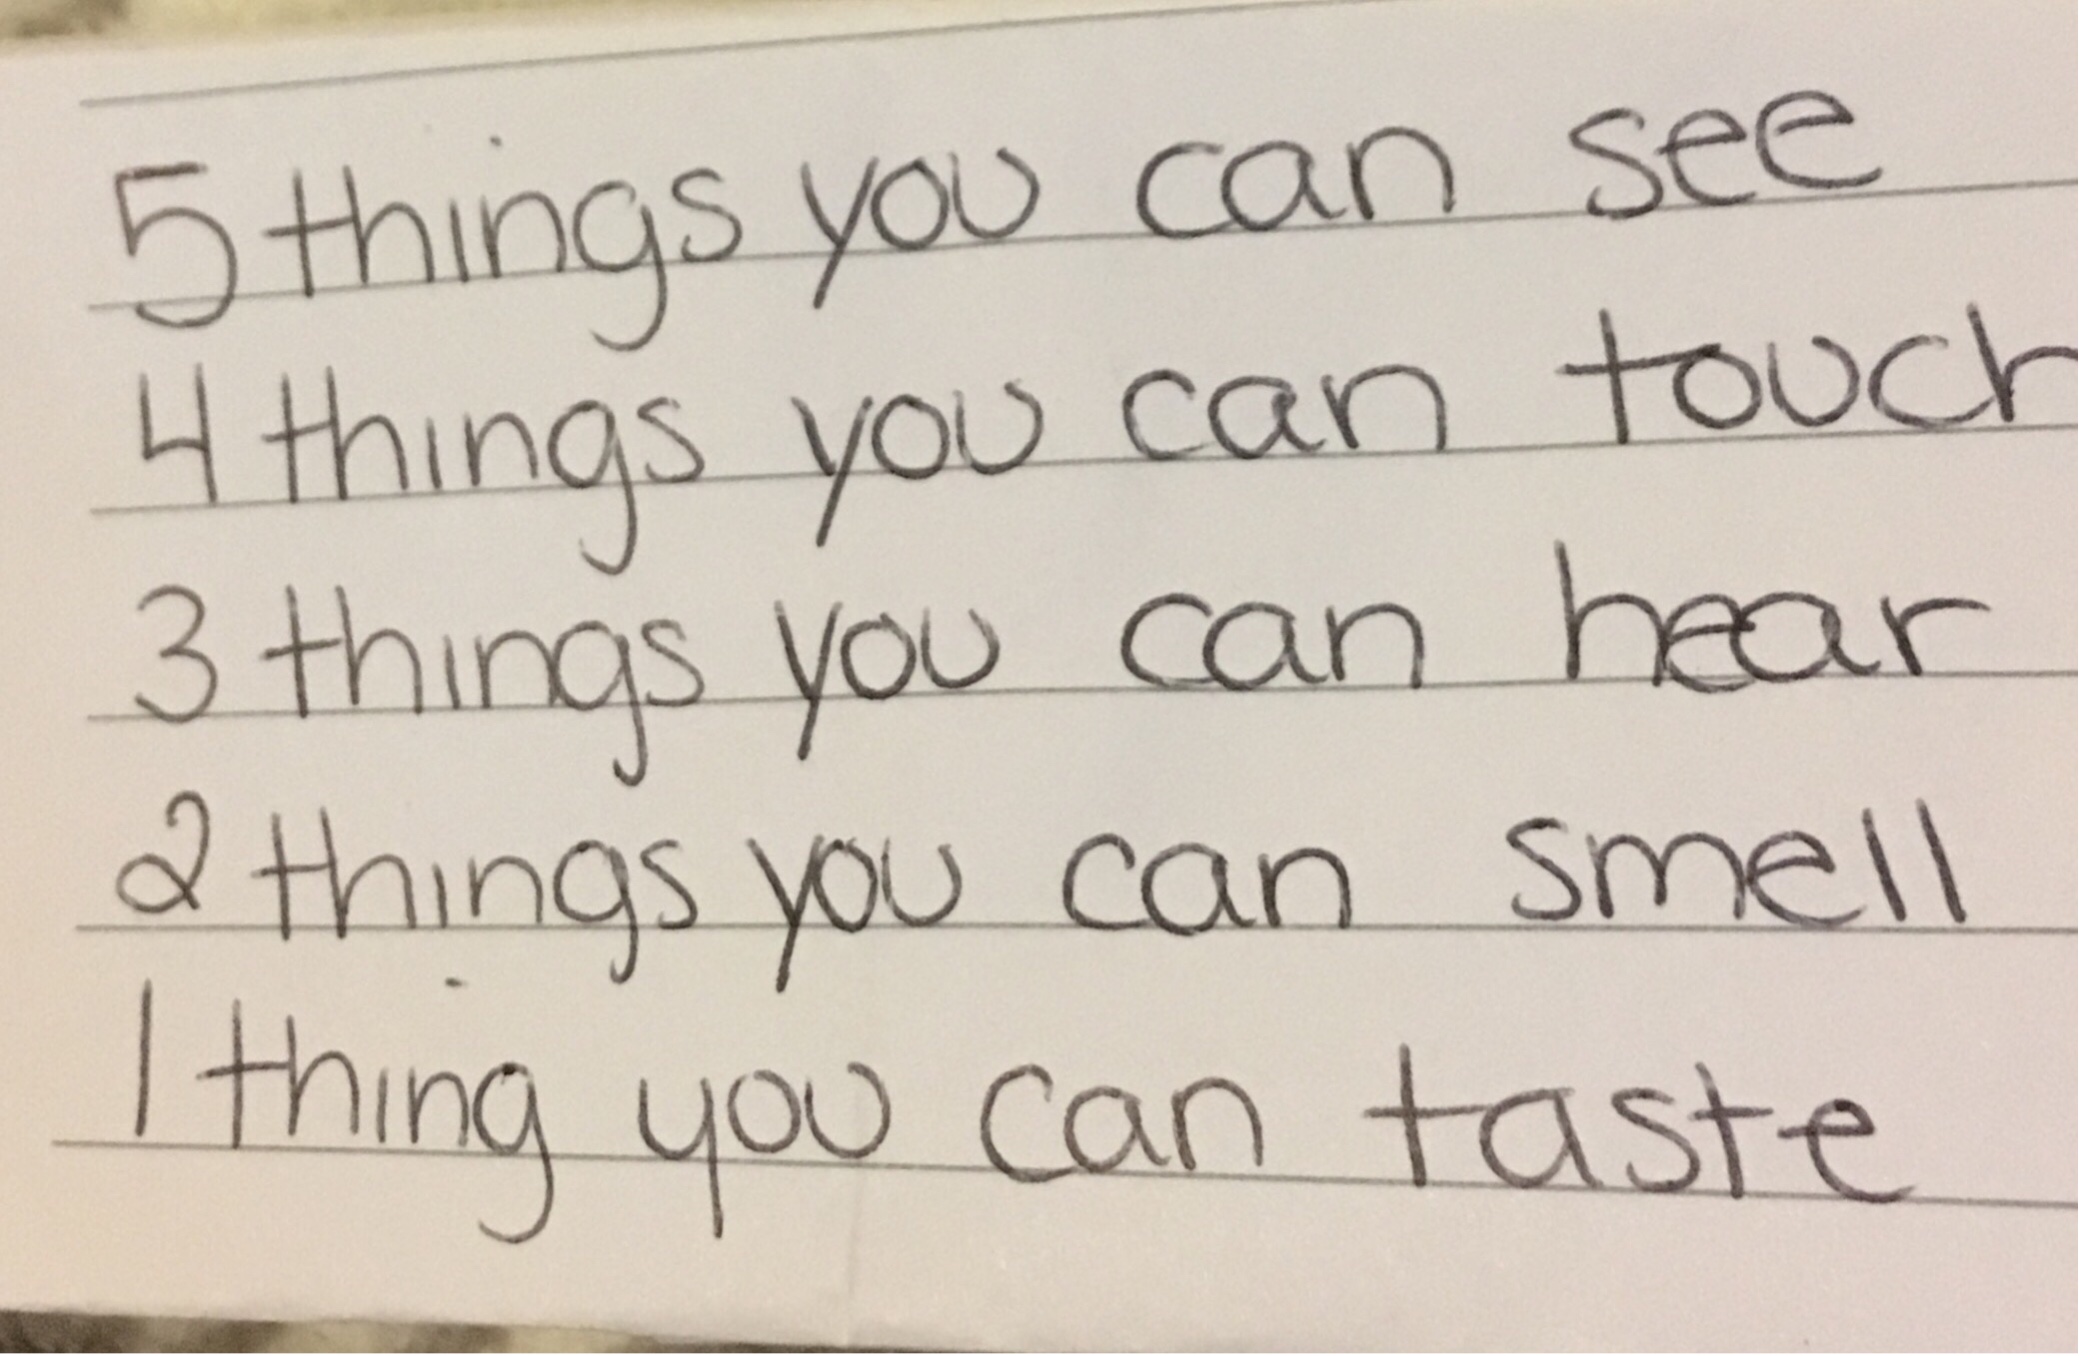 5 things you can see
4 things you can touch
3 things you can hear
2 things you can smell
1 thing you can taste